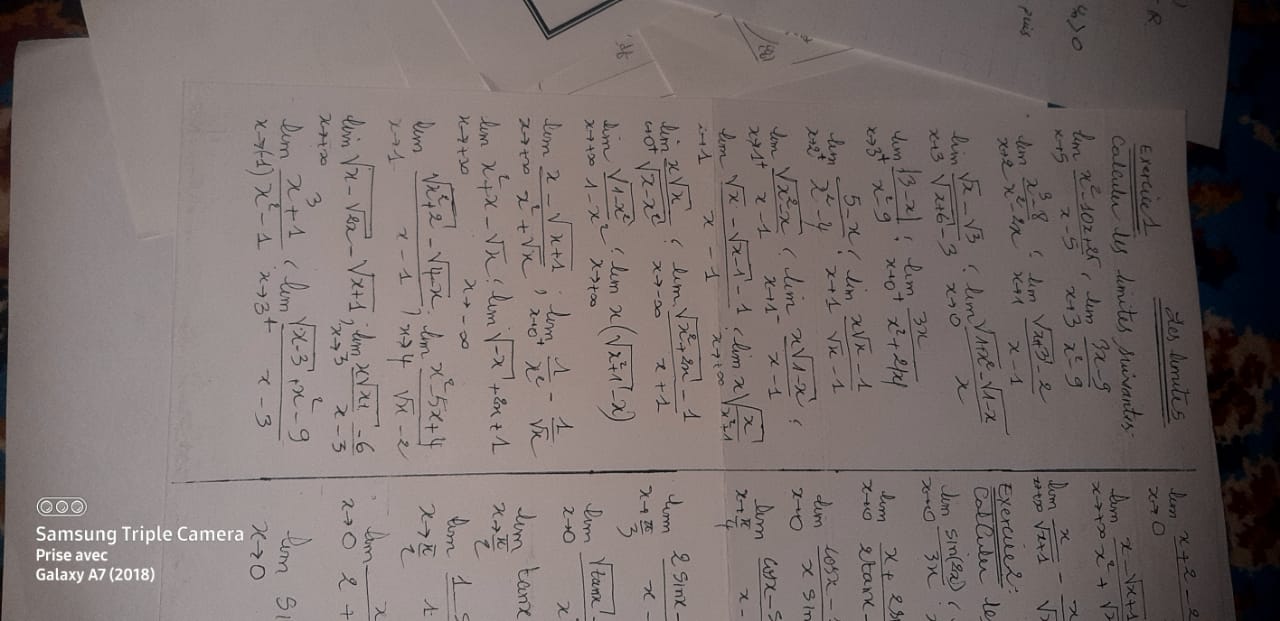 Les limites
Exercice 1
Calculer les limites suivantes.
lim x→5 (x²-10x+25)/(x-5) ; lim x→3 (3x-9)/(x²-9)
lim x→2 (x³-8)/(x²-2x) ; lim x→1 (√(x+3)-2)/(x-1)
lim x→3 (√x-√3)/(√(x+6)-3) ; lim x→0 (√(1+x)-√(1-x))/x
lim x→3⁺ |3-x|/(x²-9) ; lim x→0⁺ 3x/(x²+2|x|)
lim x→2⁺ (5-x)/(x²-4) ; lim x→1 (x√x-1)/(√x-1)
lim x→1⁺ √(x²-x)/(x-1) ; lim x→1⁻ x√(1-x)/(x-1) ;
lim x→1 (√x-√(x-1)-1)/(x-1) ; lim x→+∞ x√(x/(x²+1))
lim x→0⁺ x√x/√(x-x²) ; lim x→-∞ (√(x²+2x)-1)/(x+1)
lim x→+∞ √(1+x²)/(1-x²) ; lim x→+∞ x(√(x²+1)-x)
lim x→+∞ (x-√(x+1))/(x²+√x) ; lim x→0⁺ 1/x² - 1/√x
lim x→+∞ x²+x-√x ; lim x→-∞ √(-x)+2x+1
lim x→1 (√(x²+2)-√(4-x))/(x-1) ; lim x→4 (x²-5x+4)/(√x-2)
lim x→+∞ √(x-√(2x))-√(x+1) ; lim x→3
lim x→(-1) (x³+1)/(x²-1) ; lim x→3⁺ (√(x-3)+x²-9)/(x-3)
lim x→0 x+2-2
lim x→+∞ x-√(x+1) x²+√x
lim x→+∞ x/√(x+1) - x/√
Exercice 2:
Calculer le
lim x→0 sin(2x)/3x ;
lim x→0 x+2 / 2tanx-
lim x→0 cosx- / x sin
lim x→π/4 cosx-s / x-
lim x→π/3 2sinx- / x-
lim x→0 √(tanx) / x
lim x→π/2 tanx
lim x→π/2 1-s / 1
lim x→0 x / 2+
lim x→0 si